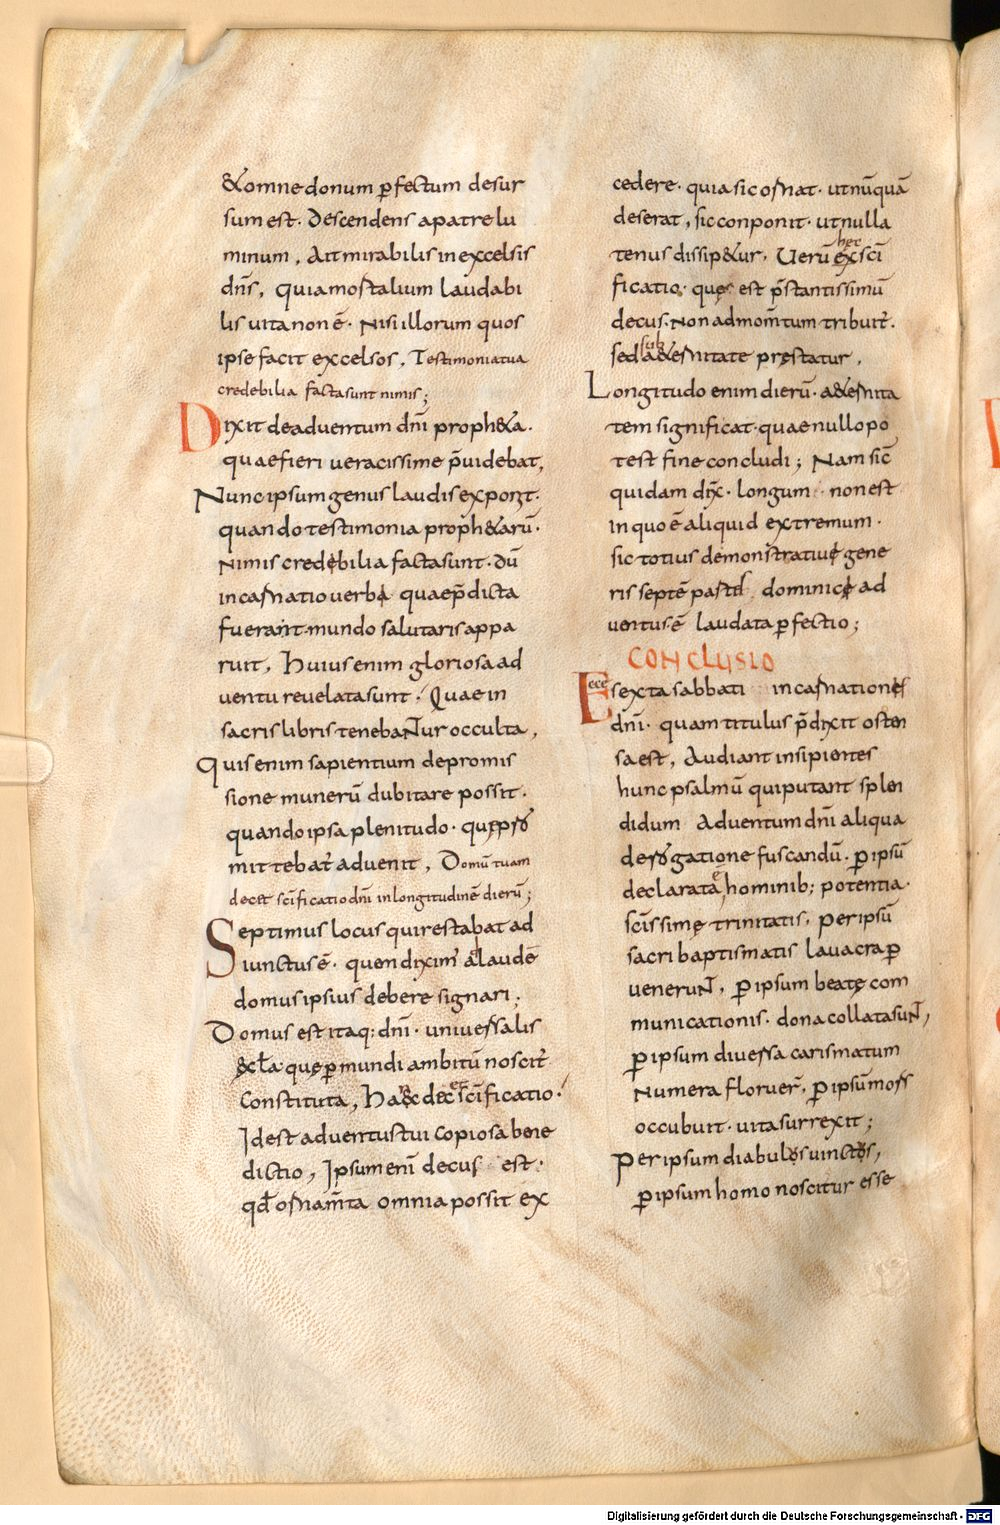 &omne donum ꝑfectum desur
sum est. Descendens a patre lu
minum, Ait mirabilis in excelsis
dn̄s, quia mortalium laudabi
lis uita non ē. Nisi illorum quos
ipse facit excelsos. Testimonia tua
credebilia facta sunt nimis;
Dixit de aduentum dn̄i proph&a.
quae fieri ueracissime p̄uidebat,
Nunc ipsum genus laudis exponit.
quando testimonia proph&arū.
Nimis credebilia facta sunt. dū
incarnatio uerbi quae p̄dicta
fuerant mundo salutaris appa
ruit, Huius enim gloriosa ad
uentu reuelata sunt. Quae in
sacris libris tenebantur occulta,
Quis enim sapientium de promis
sione munerū dubitare possit.
quando ipsa plenitudo. quę pro
mittebat᷑ aduenit, Domū tuam
decet sc̄ificatio dn̄i in longitudinē dierū;
Septimus locus qui restabat ad
iunctus ē. quen diximꝰ a laudē
domus ipsius debere signari;
Domus est itaq; dn̄i. uniuersalis
&cl̄a. quę ꝑ mundi ambitū noscit᷑
constituta, Hanc dec& sc̄ificatio.
Id est aduentus tui copiosa bene
dictio, Ipsum enī decus est.
qđ ornam̄ta omnia possit ex
cedere. quia sic ornat. ut nūquā
deserat, sic conponit. ut nulla
tenus dissip&ur. Uerū hec sc̄i
ficatio. quę est p̄stantissimū
decus. Non ad mom̄tum tribuit᷑.
sed sub &ernitate prestatur,
Longitudo enim dierū. a&ernita
tem significat. quae nullo po
test fine concludi; Nam sic̄
quidam dix̄. longum non est
in quo ē aliquid extremum.
sic totius demonstratiuę gene
ris septē partes dominicę ad
uentus ē laudata ꝑfectio;
CONCLUSIO
Ecce sexta sabbati incarnationes
dn̄i. quam titulus p̄dixit osten
sa est, Audiant insipientes
hunc psalmū qui putant splen
didum Aduentum dn̄i aliqua
derogatione fuscandū. ꝑ ipsū
declarata ē hominib; potentia.
sc̄issimę trinitatis. per ipsū
sacri baptismatis lauacra ꝑ
uenerunt, ꝑ ipsum beatę com
municationis. dona collata sunt,
ꝑ ipsum diuersa carismatum
Numera floruer̄, ꝑ ipsū mors
occubuit. uita surrexit;
Per ipsum diabulos uinctos,
ꝑ ipsum homo noscitur esse
Digitalisierung gefördert durch die Deutsche Forschungsgemeinschaft - DFG